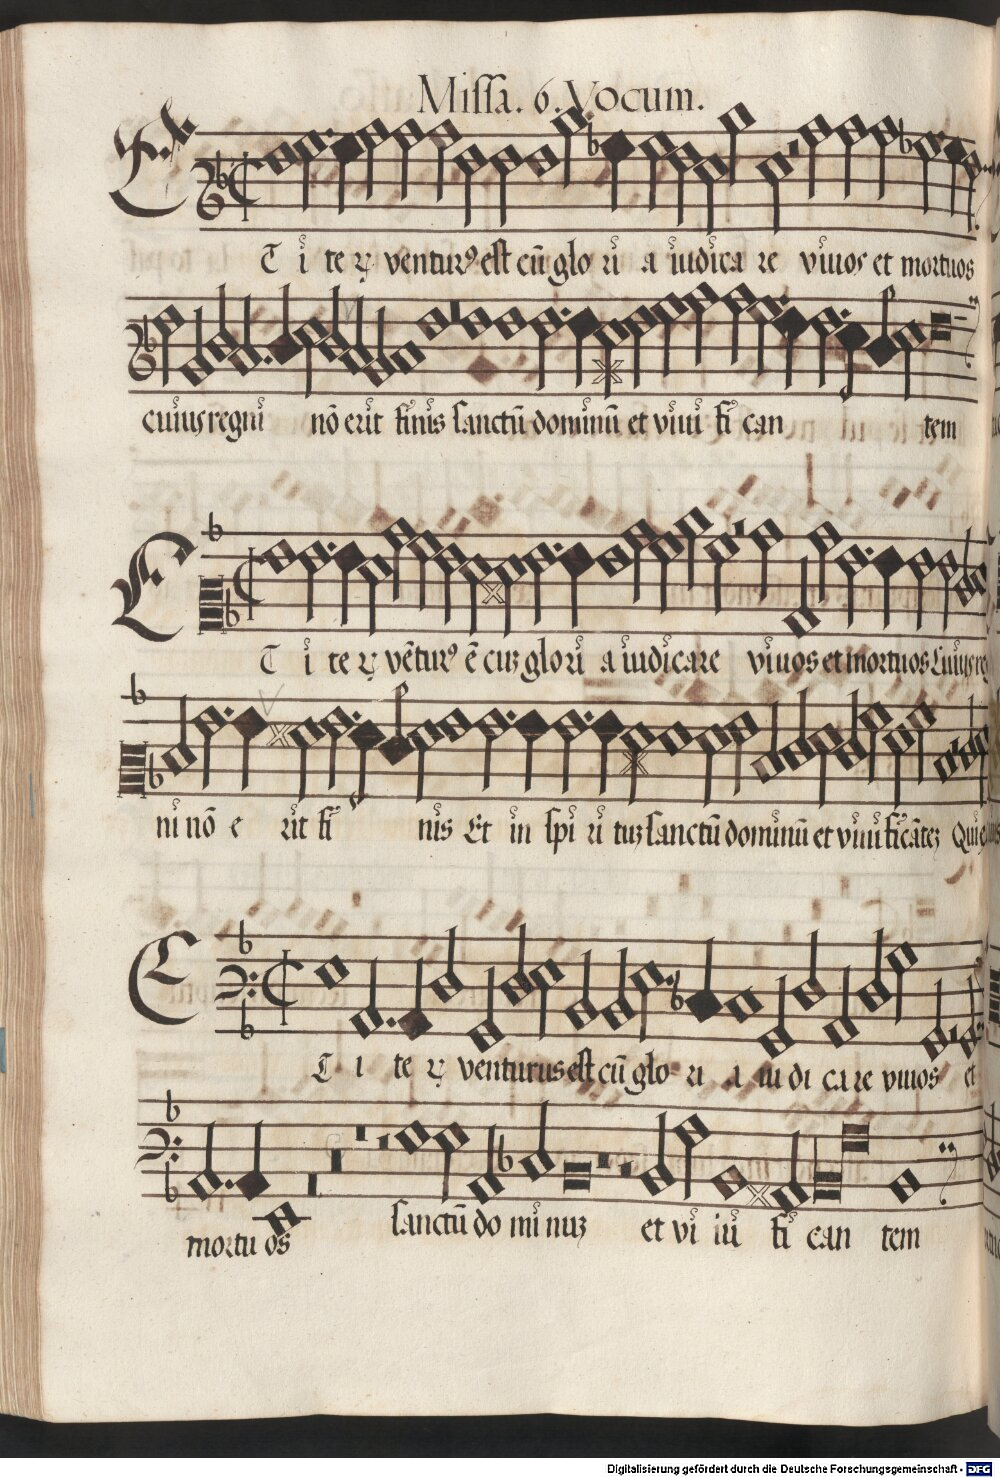 Missa. 6. Vocum.
ET i teꝝ venturꝰ est cū glo ri a iudica re viuos et mortuos
cuius regni nō erit finis sanctū dominū et viui fi can tem
ET i teꝝ vētur⁹ ē cuȝ glo ri a iudicare viuos et mortuos Cuius re
ni nō e rit fi nis Et in spi ri tuȝ sanctū dominū et viuificātēȝ Qui e
ET i te ꝝ venturus est cū glo ri a iu di ca re viuos et
mortu os sanctū do mi nuȝ et vi iu fi can tem
Digitalisierung gefördert durch die Deutsche Forschungsgemeinschaft - DFG